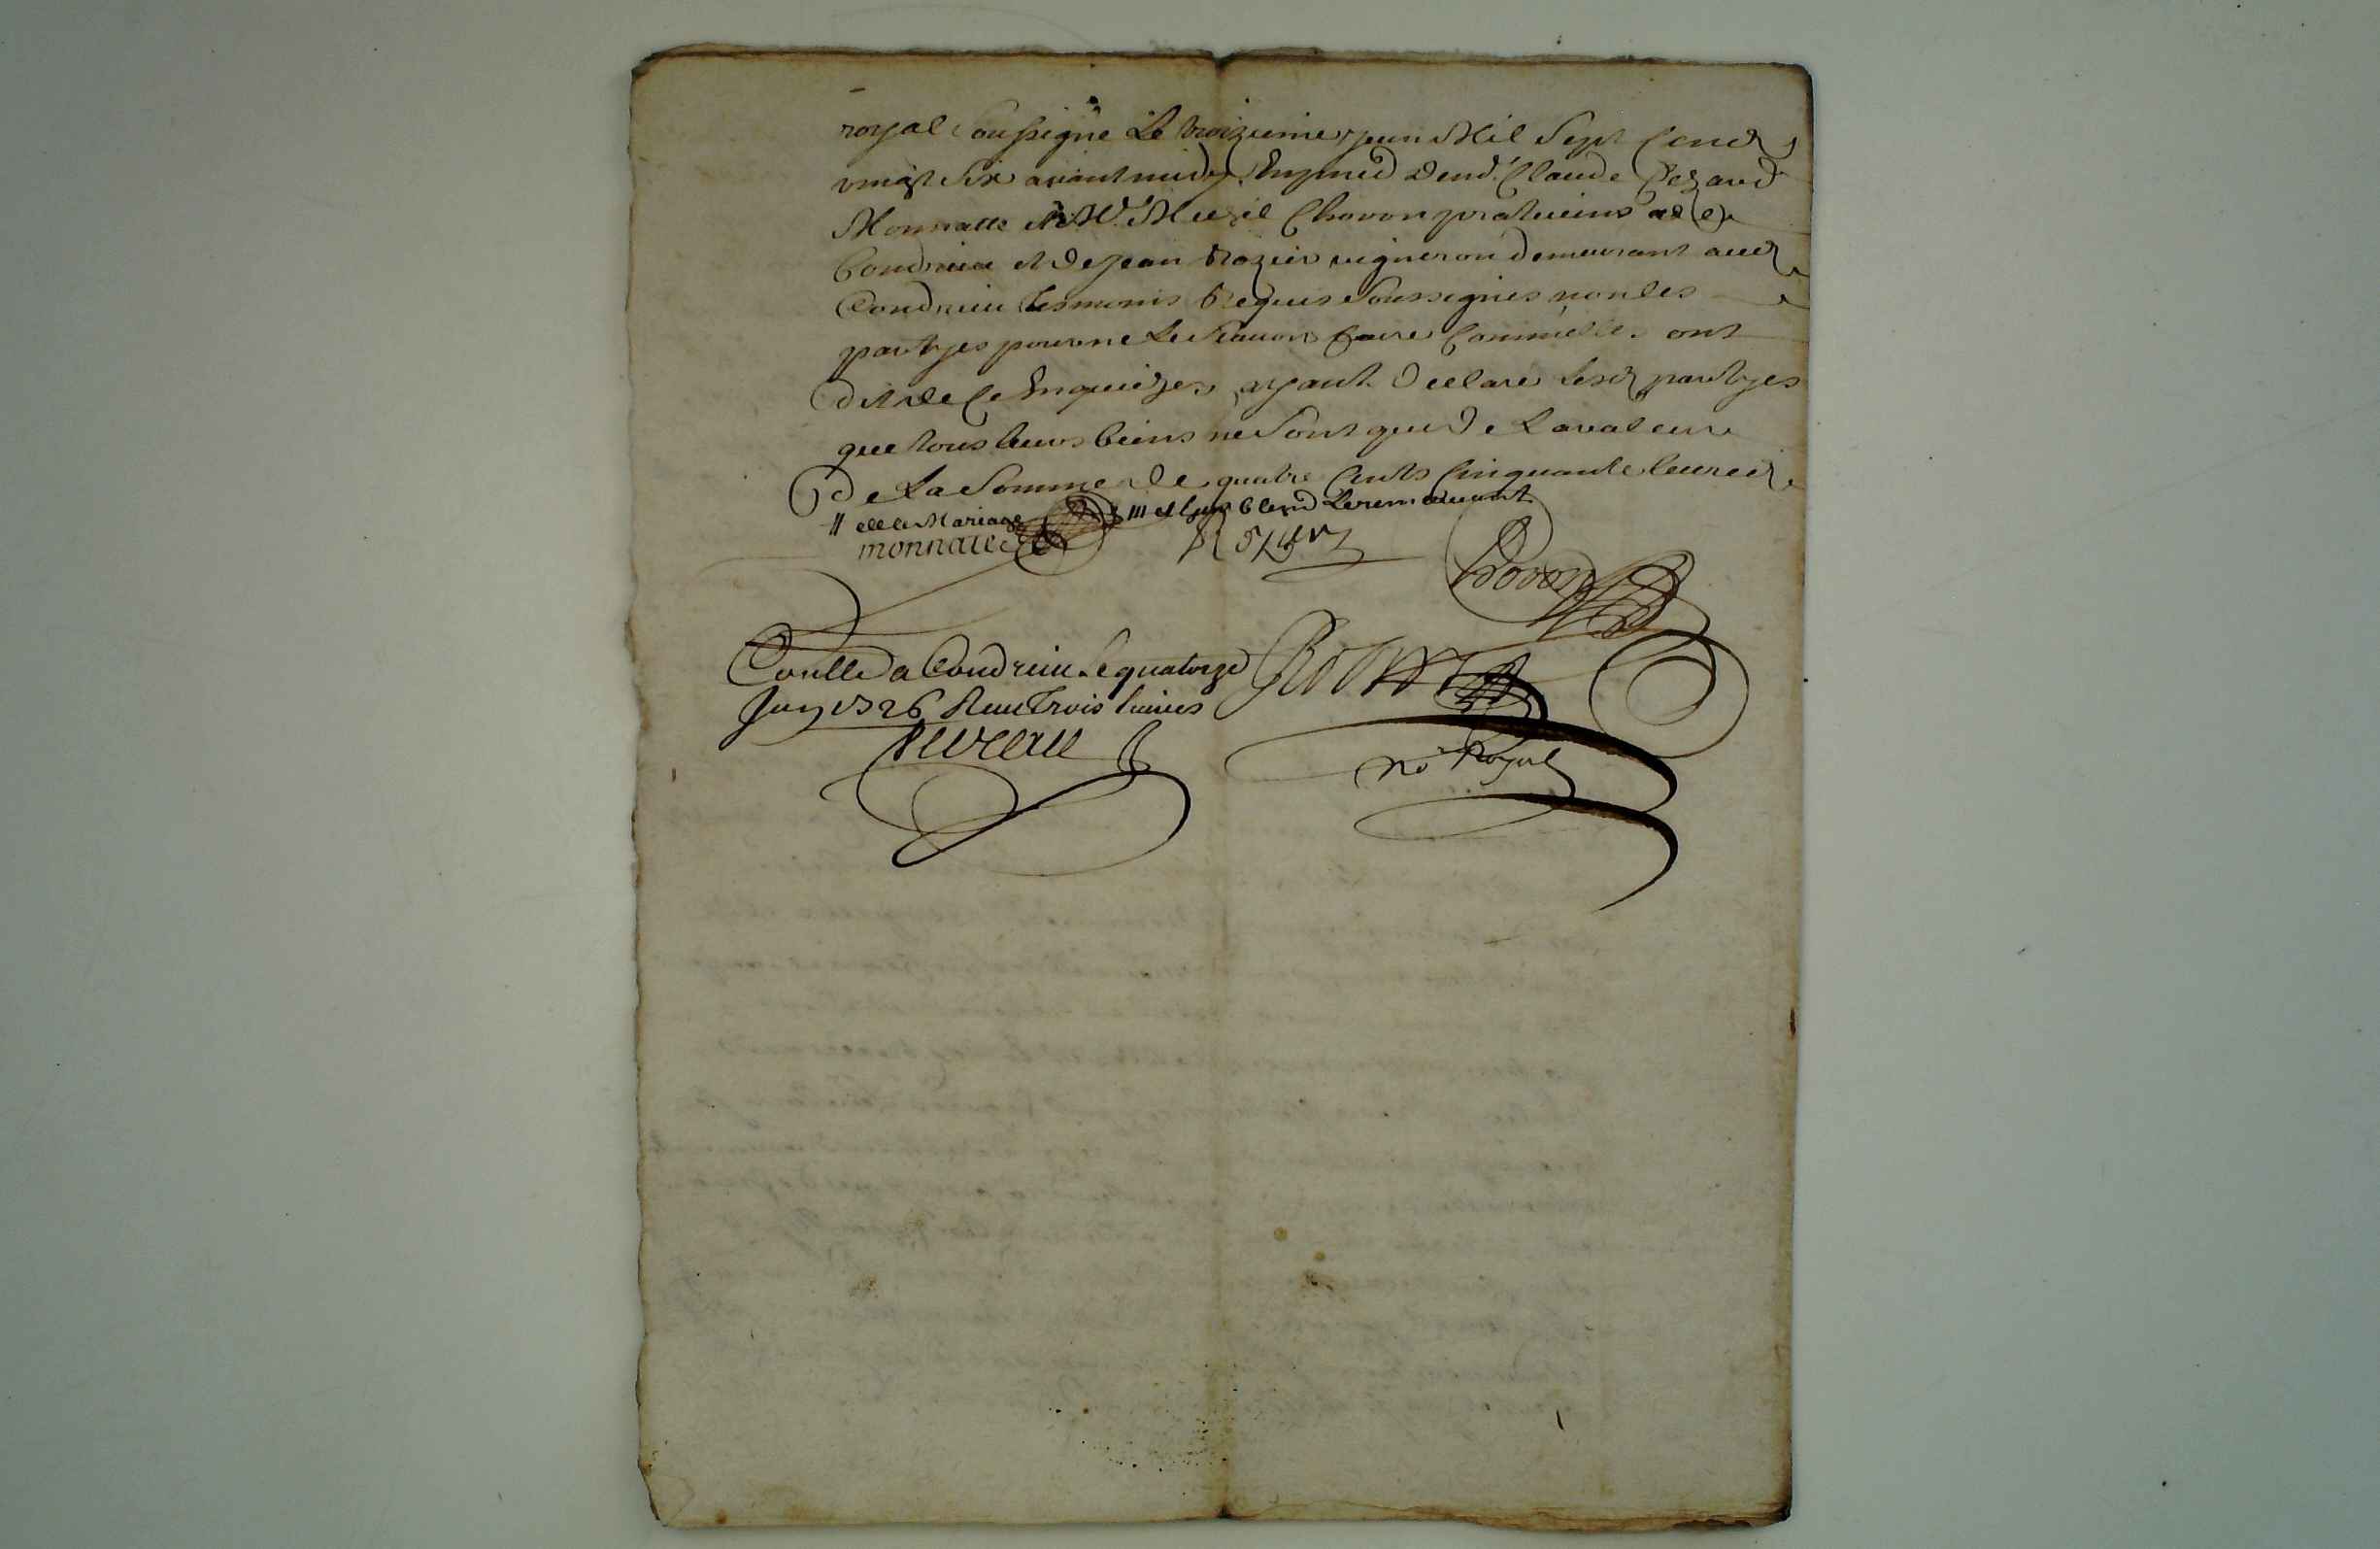 royal soussigné Le troizieme juin Mil Sept Cend
vingt Six avant midy En pnce de md. Claude Cezard
Monnatte et Me Chovon praticiens
Condrieu et de jean Rozier vigneron demeurant aud
Condrieu tesmoins Requis Soussignes non les
partyes pour ne Le Scauoir faire Comme elles ont
dit de Ce Enquizes, ayant declaré Lesd partyes
que tous leurs biens ne Sont que de La valeur
de La Somme de quatre Cents Cinquante liures
// de le Mariage
monnate
Chovon
Conlle a Condrieu Le quatorze
Juin 1726 Reeu Trois liures
no Royal